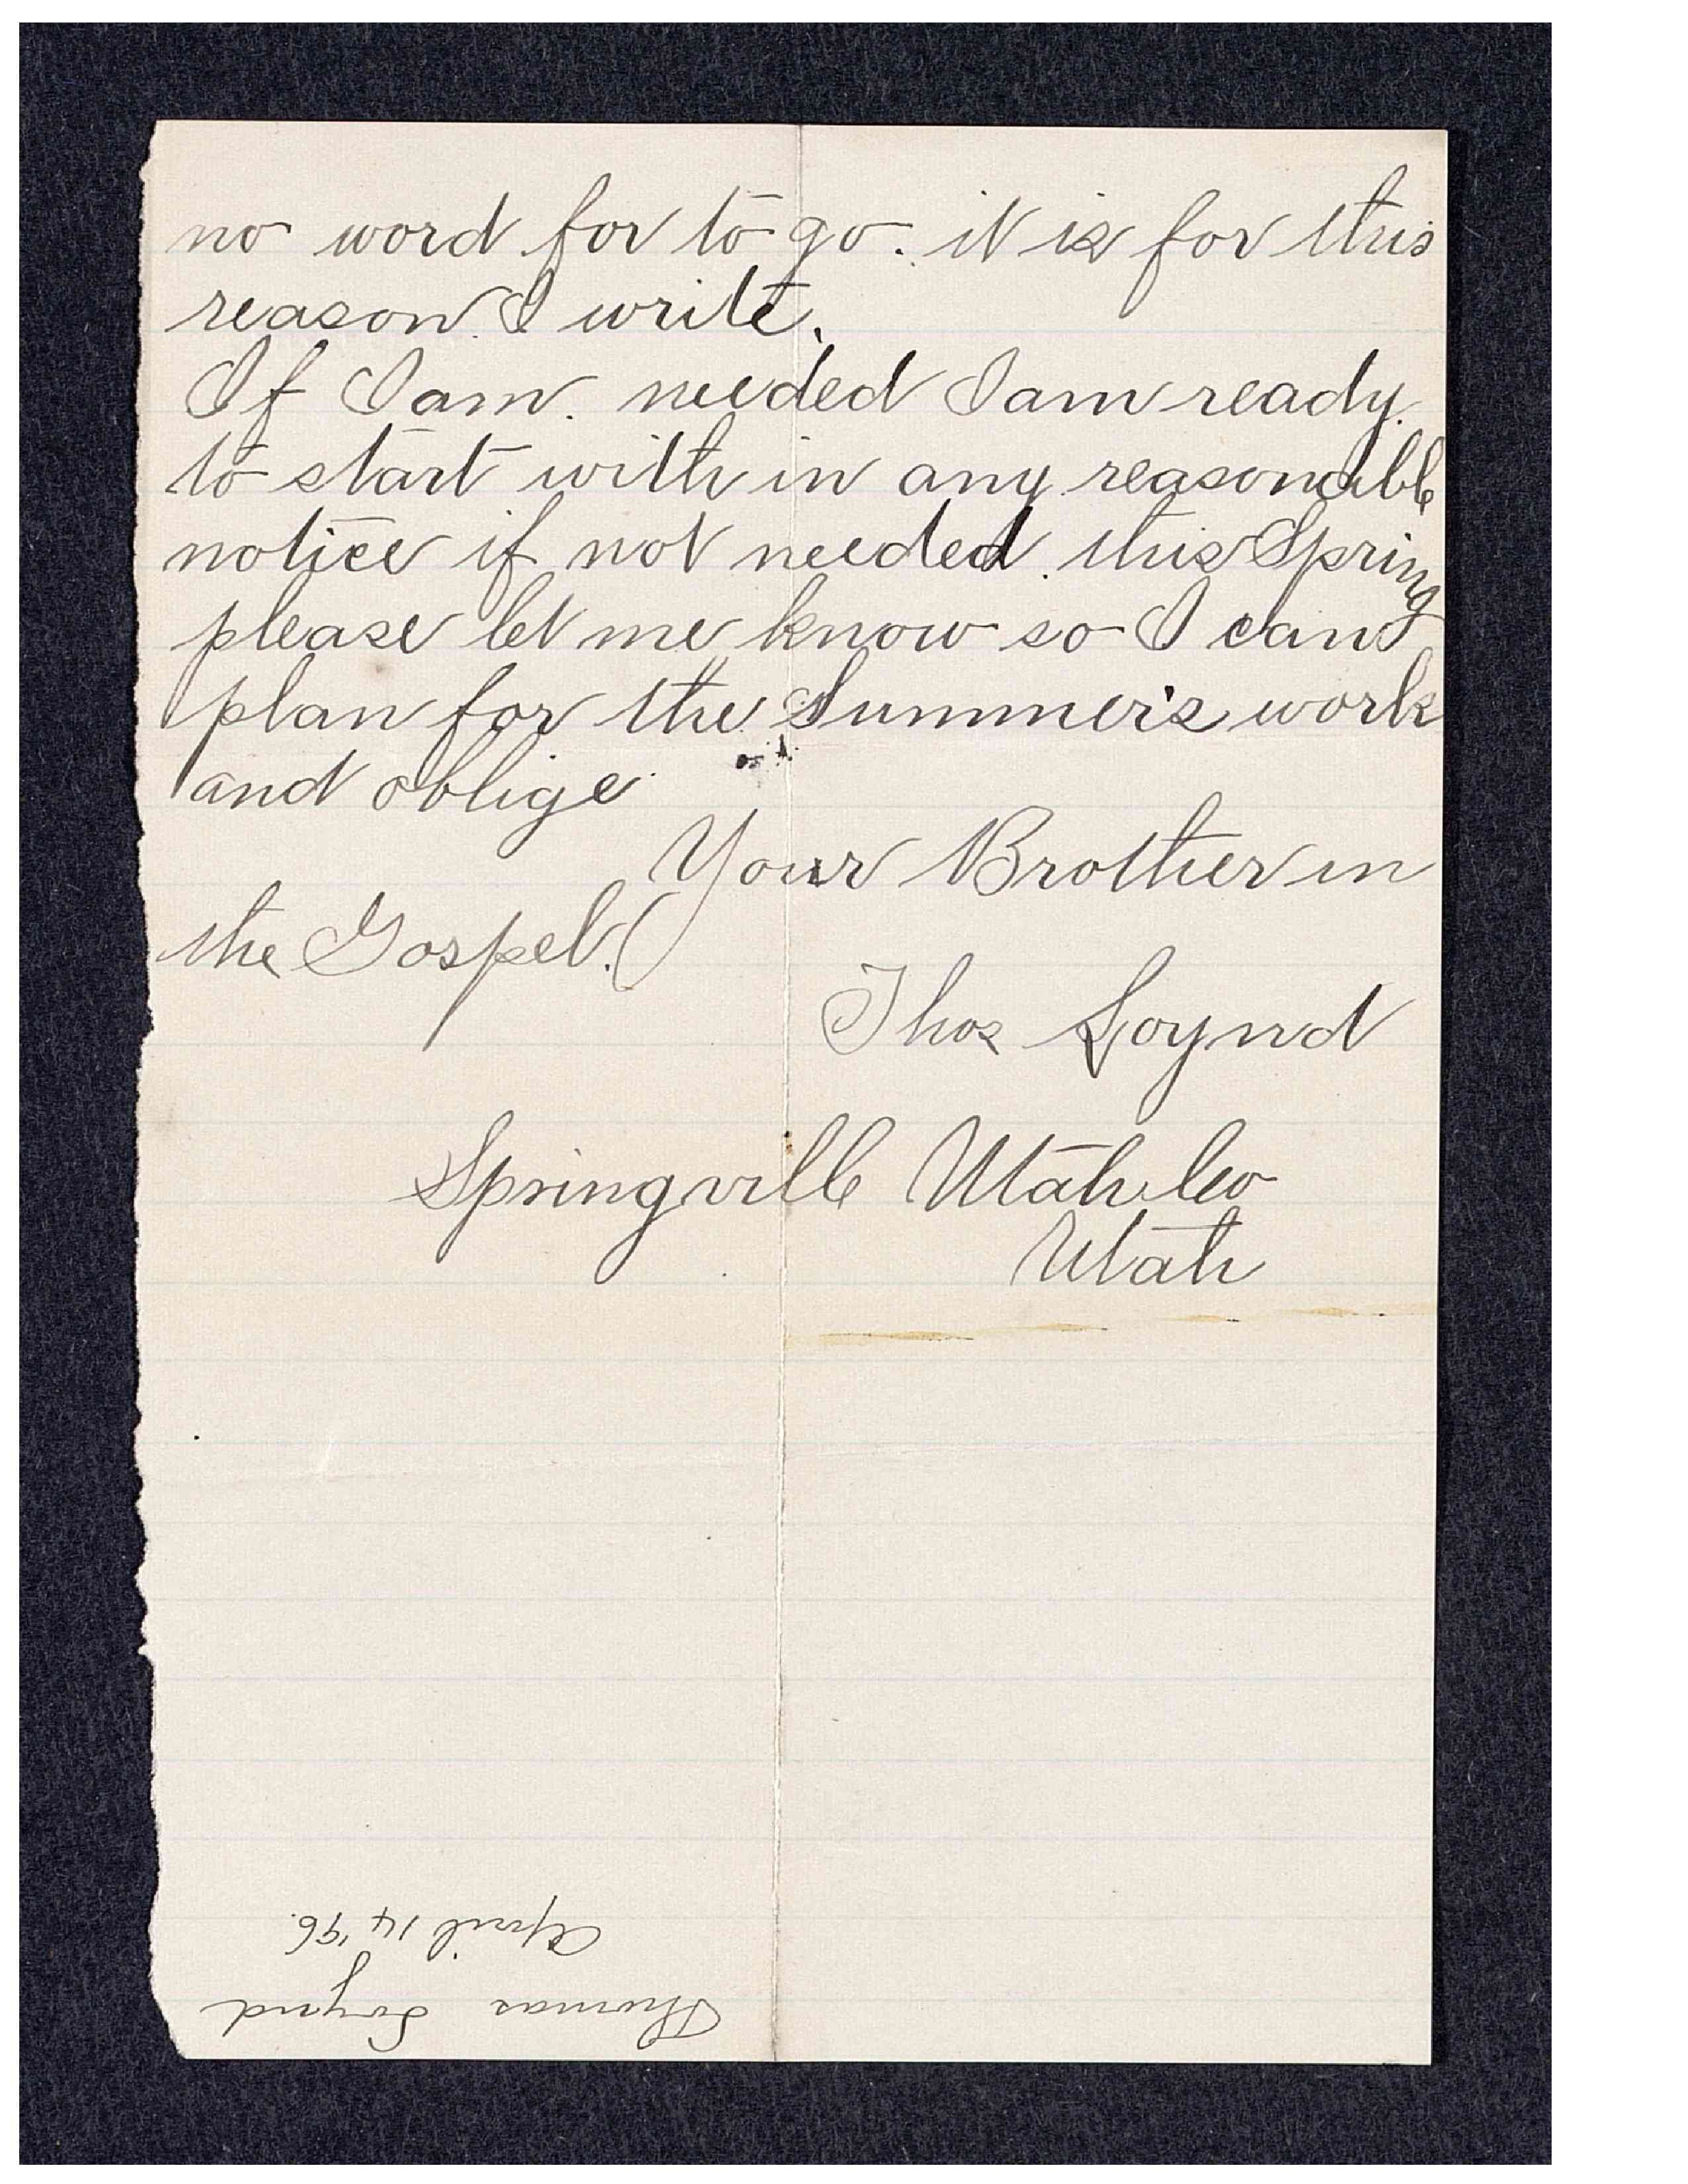 no word for to go. it is for this
reason I write.
If I am needed I am ready.
to start with in any reasonable
notice if not needed this Spring
please let me know so I can
plan for the Summer's work
and oblige
Your Brother in
the Gospel.
Thos Loynd
Springville Utah Co
Utah
Thomas Loynd
April 14 '96.